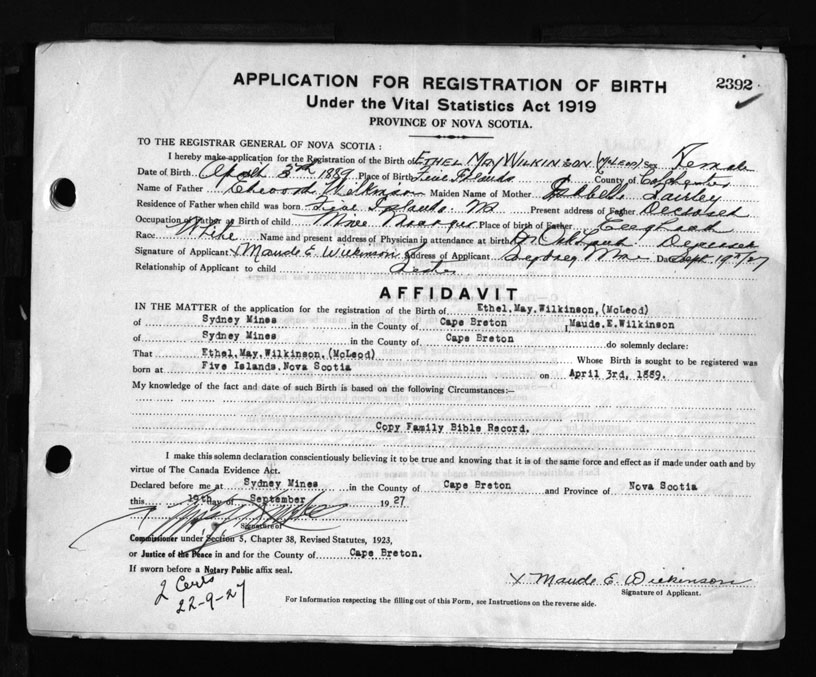 APPLICATION FOR REGISTRATION OF BIRTH 2392
Under the Vital Statistics Act 1919
PROVINCE OF NOVA SCOTIA.
TO THE REGISTRAR GENERAL OF NOVA SCOTIA :
I hereby make application for the Registration of the Birth of ETHEL MAY WILKINSON (McLeod) Sex Female
Date of Birth April 3rd 1889 Place of Birth Five Islands County of Colchester
Name of Father Wilkinson Maiden Name of Mother
Residence of Father when child was born Five Islands. NS Present address of Father Deceased
Occupation of Father at Birth of child Place of birth of Father
Race White Name and present address of Physician in attendance at birth Dr Deceased
Signature of Applicant x Maude E. Wilkinson Address of Applicant Sydney Mines Date Sept 19th/27
Relationship of Applicant to child Sister
AFFIDAVIT
IN THE MATTER of the application for the registration of the Birth of Ethel.May.Wilkinson,(McLeod)
of Sydney Mines in the County of Cape Breton ,Maude.E.Wilkinson
of Sydney Mines in the County of Cape Breton do solemnly declare:
That Ethel.May.Wilkinson.(McLeod) Whose Birth is sought to be registered was
born at Five Islands.Nova Scotia on April 3rd, 1889.
My knowledge of the fact and date of such Birth is based on the following Circumstances:—
Copy Family Bible Record.
I make this solemn declaration conscientiously believing it to be true and knowing that it is of the same force and effect as if made under oath and by
virtue of The Canada Evidence Act.
Declared before me at Sydney Mines in the County of Cape Breton and Province of Nova Scotia
this 19th day of September 1927
Signature of
Commissioner under Section 5, Chapter 38, Revised Statutes, 1923,
or Justice of the Peace in and for the County of Cape Breton.
If sworn before a Notary Public affix seal.
x Maude E. Wilkinson
Signature of Applicant.
2 Certs
22-9-27
For Information respecting the filling out of this Form, see Instructions on the reverse side.